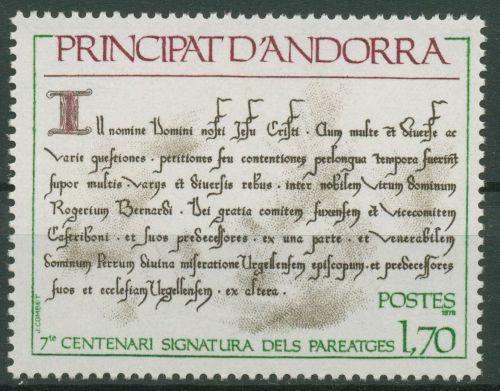 PRINCIPAT D'ANDORRA
In nomine Domini nostri Jesu Cristi. Cum multe et diverse ac
varie questiones. petitiones seu contentiones perlongua tempora fuerint
super multis varys et diversis rebus. inter nobilem virum dominum
Rogerium Bernardi. Dei gratia comitem fuxensem et vicecomitem
Castriboni. et suos predecessores. ex una parte. et venerabilem
dominum Petrum divina miseratione Urgellensem episcopum. et predecessores
suos et ecclesian Urgellensem. ex altera.
POSTES
1978
1,70
7te CENTENARI SIGNATURA DELS PAREATGES
J. COMBET